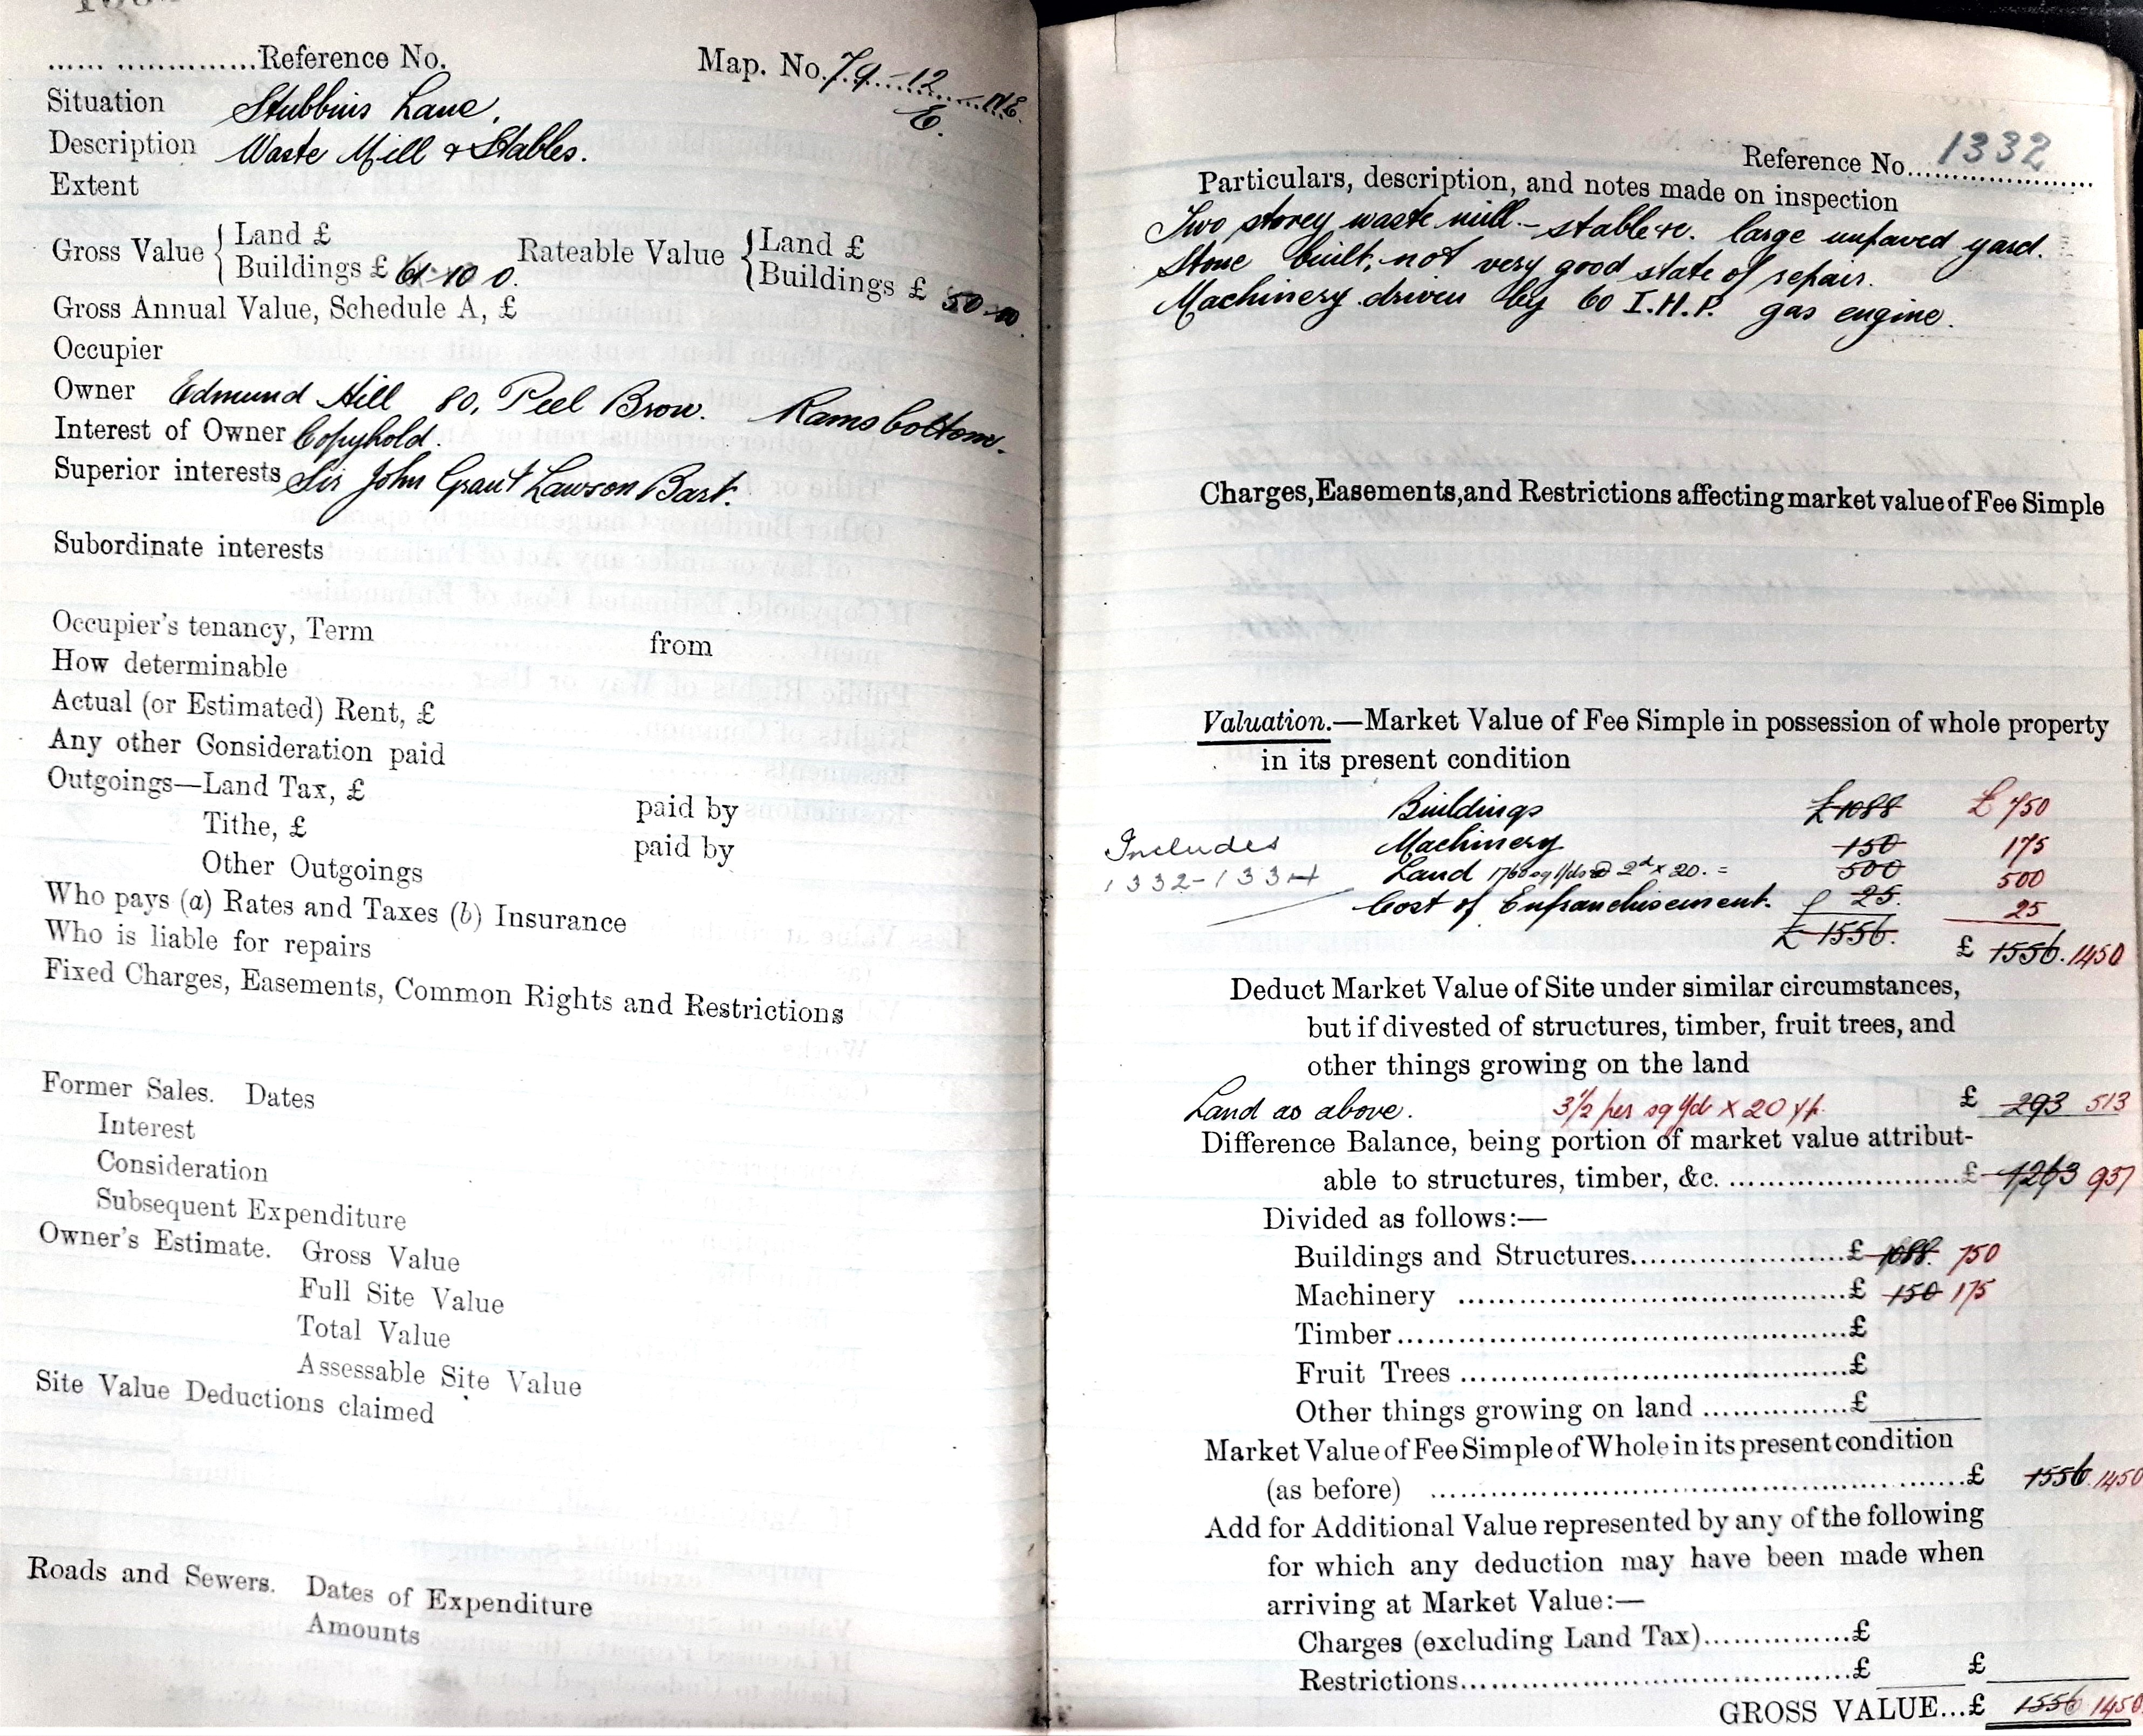 .................... Reference No.
Map. No. 79-12 NE.
E.
Situation Stubbins Lane.
Description Waste Mill & Stables.
Extent
Gross Value { Land £
Buildings £ 61-10 0.
Rateable Value { Land £
Buildings £ 50-00
Gross Annual Value, Schedule A, £
Occupier
Owner Edmund Hill 80, Peel Brow. Ramsbottom.
Interest of Owner Copyhold.
Superior interests Sir John Grant Lawson Bart.
Subordinate interests
Occupier's tenancy, Term from
How determinable
Actual (or Estimated) Rent, £
Any other Consideration paid
Outgoings—Land Tax, £ paid by
Tithe, £ paid by
Other Outgoings
Who pays (a) Rates and Taxes (b) Insurance
Who is liable for repairs
Fixed Charges, Easements, Common Rights and Restrictions
Former Sales. Dates
Interest
Consideration
Subsequent Expenditure
Owner's Estimate. Gross Value
Full Site Value
Total Value
Assessable Site Value
Site Value Deductions claimed
Roads and Sewers. Dates of Expenditure
Amounts
Reference No. 1332
Particulars, description, and notes made on inspection
Two storey waste mill - stable &c. large unpaved yard.
Stone built, not very good state of repair.
Machinery driven by 60 I.H.P. gas engine.
Charges, Easements, and Restrictions affecting market value of Fee Simple
Valuation.—Market Value of Fee Simple in possession of whole property
in its present condition
Buildings £1088 £750
Includes Machinery 150 175
1332-1334 Land 1760 sq yds @ 2d x 20. = 500 500
Cost of Enfranchisement. 25. 25
£1556. £ 1556. 1450
Deduct Market Value of Site under similar circumstances,
but if divested of structures, timber, fruit trees, and
other things growing on the land
Land as above. 3½ per sq yd x 20 yp. £ 293 513
Difference Balance, being portion of market value attribut-
able to structures, timber, &c. ........................£ 1263 937
Divided as follows:—
Buildings and Structures......................£ 1088. 750
Machinery ........................................£ 150 175
Timber..............................................£
Fruit Trees .......................................£
Other things growing on land ...............£
Market Value of Fee Simple of Whole in its present condition
(as before) ........................................................£ 1556. 1450
Add for Additional Value represented by any of the following
for which any deduction may have been made when
arriving at Market Value:—
Charges (excluding Land Tax)...............£
Restrictions.......................................£ £
GROSS VALUE...£ 1556 1450